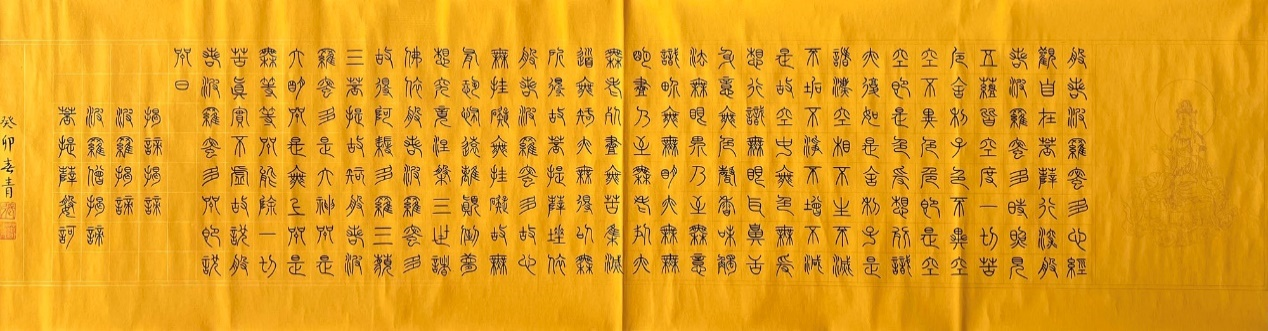 般若波羅蜜多心經
觀自在菩薩行深般
若波羅蜜多時照見
五蘊皆空度一切苦
厄舍利子色不異空
空不異色色即是空
空即是色受想行識
亦復如是舍利子是
諸法空相不生不滅
不垢不淨不增不減
是故空中無色無受
想行識無眼耳鼻舌
身意無色聲香味觸
法無眼界乃至無意
識界無無明亦無無
明盡乃至無老死亦
無老死盡無苦集滅
道無智亦無得以無
所得故菩提薩埵依
般若波羅蜜多故心
無挂礙無挂礙故無
有恐怖遠離顛倒夢
想究竟涅槃三世諸
佛依般若波羅蜜多
故得阿耨多羅三藐
三菩提故知般若波
羅蜜多是大神咒是
大明咒是無上咒是
無等等咒能除一切
苦真實不虛故說般
若波羅蜜多咒即說
咒曰
揭諦揭諦
波羅揭諦
波羅僧揭諦
菩提薩婆訶
癸卯春青